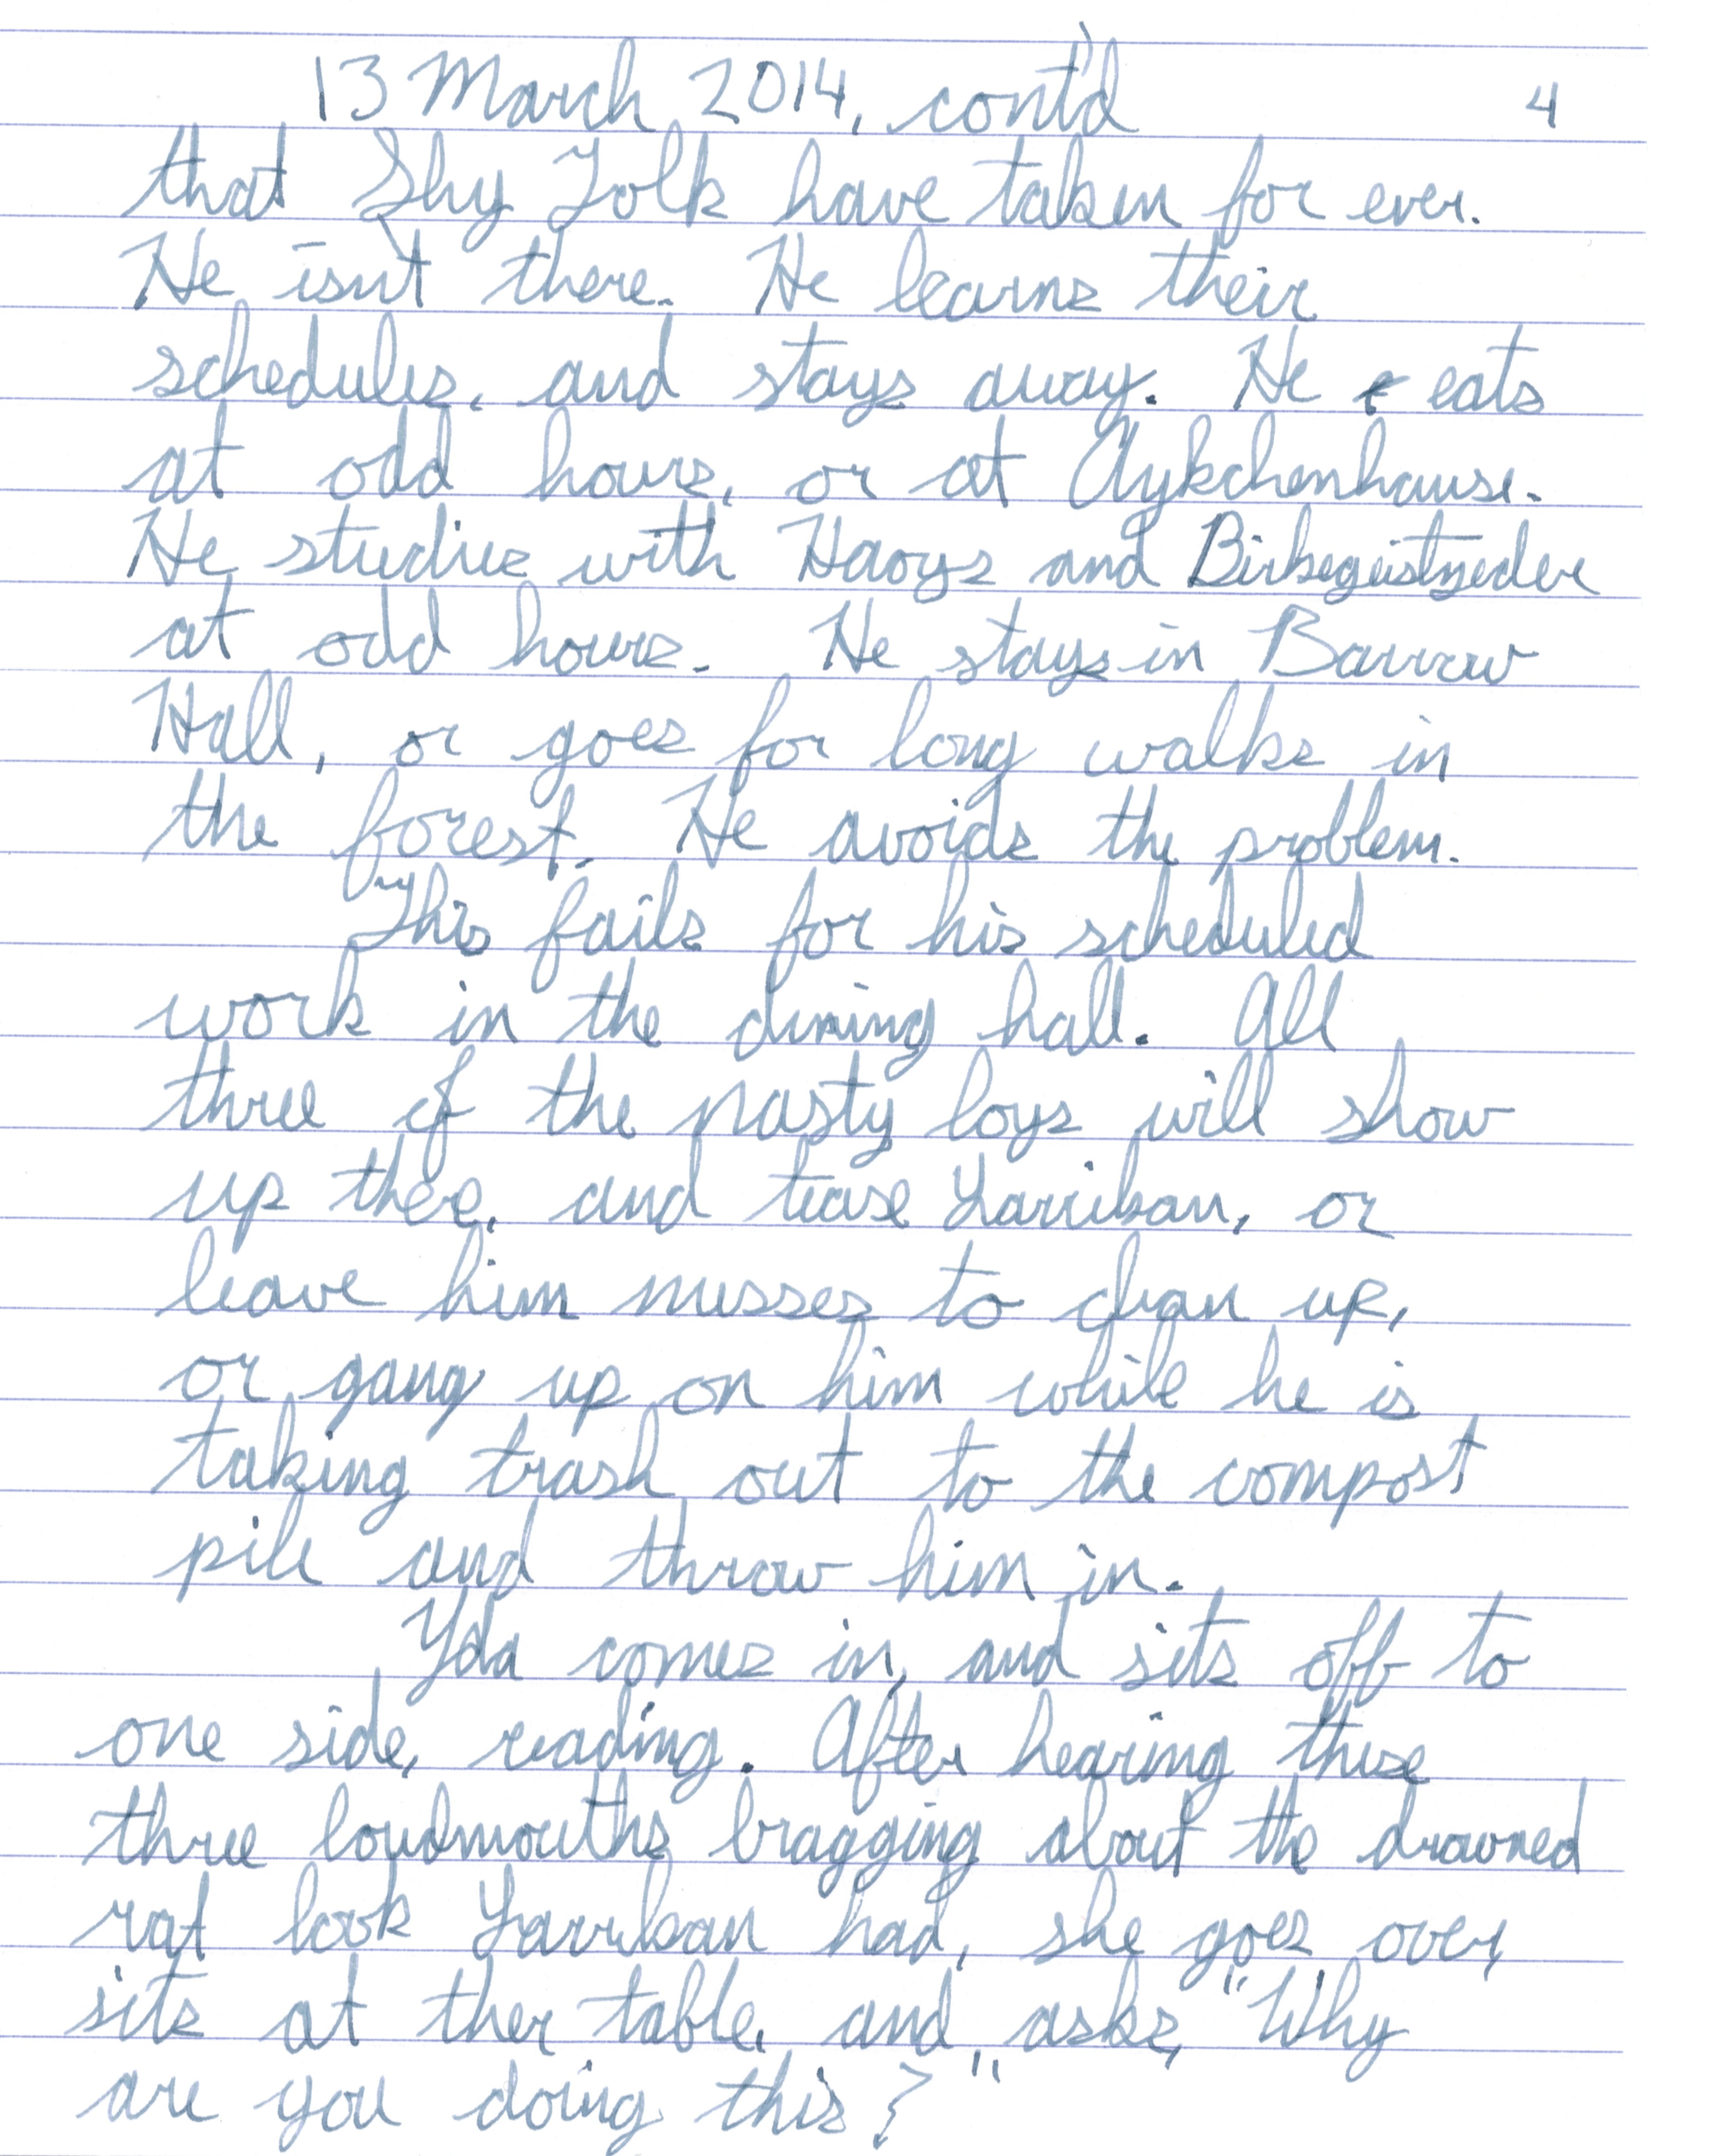 13 March 2014, cont'd 4
that Shy Folk have taken for ever.
He isn't there. He learns their
schedules, and stays away. He e eats
at odd hours, or at Aykchenhause.
He studies with Haoys and Birkegeistzeder
at odd hours. He stays in Barrow
Hall, or goes for long walks in
the forest. He avoids the problem.
This fails for his scheduled
work in the dining hall. All
three of the nasty boys will show
up there, and tease Yarriban, or
leave him messes to clean up,
or gang up on him while he is
taking trash out to the compost
pile and throw him in.
Yda comes in, and sits off to
one side, reading. After hearing these
three loudmouths bragging about the drowned
rat look Yarriban had, she goes over,
sits at ther table, and asks, "Why
are you doing this?"